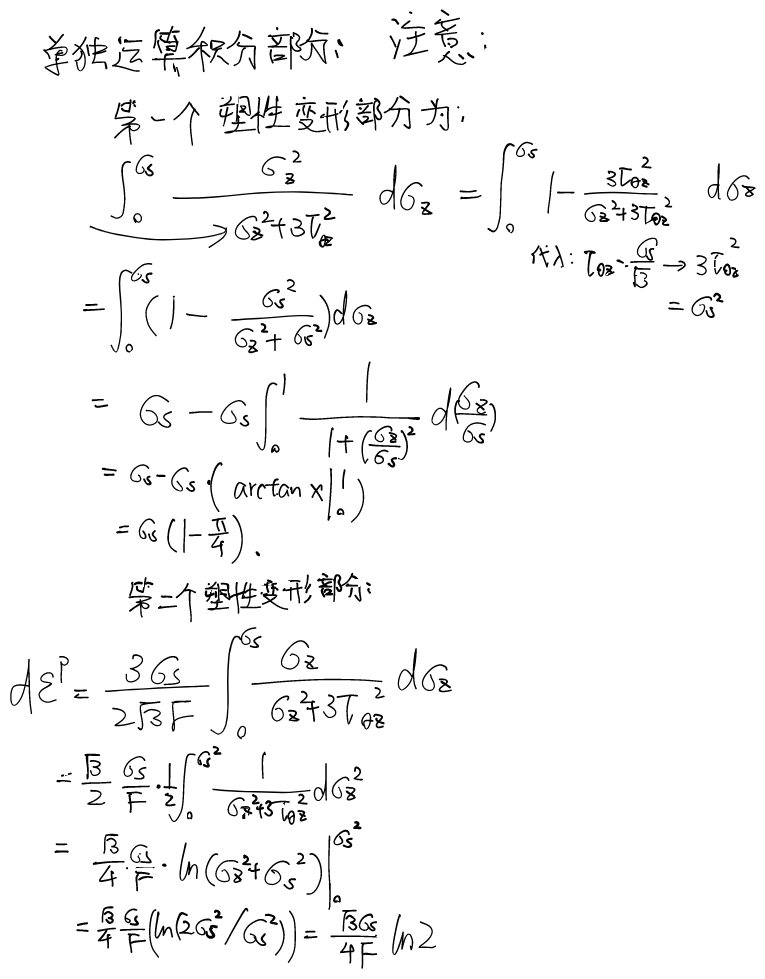 单独运算积分部分: 注意:
第一个 塑性变形部分为:
∫₀^{σs} σz²/(σz²+3τθz²) dσz = ∫₀^{σs} 1 - 3τθz²/(σz²+3τθz²) dσz
代入: τθz = σs/√3 → 3τθz²
= σs²
= ∫₀^{σs} (1 - σs²/(σz²+σs²)) dσz
= σs - σs ∫₀^1 1/(1+(σz/σs)²) d(σz/σs)
= σs - σs·(arctan x|₀^1)
= σs (1 - π/4).
第二个塑性变形部分:
dε^P = 3σs/(2√3F) ∫₀^{σs} σz/(σz²+3τθz²) dσz
= √3/2 σs/F · 1/2 ∫₀^{σs²} 1/(σz²+3τθz²) dσz²
= √3/4 · σs/F · ln(σz²+σs²)|₀^{σs²}
= √3/4 σs/F (ln(2σs²/σs²)) = √3σs/4F ln2